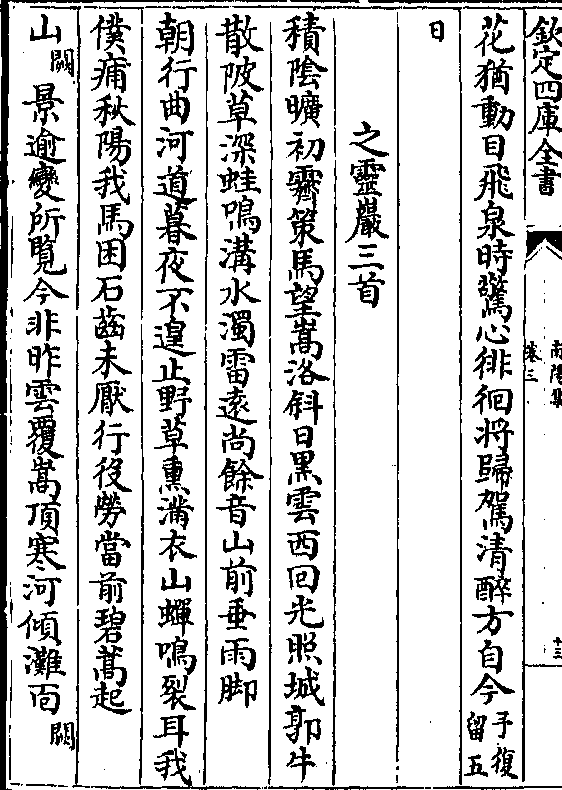 欽定四庫全書
南陽集
卷三
十三
花猶動目飛泉時驚心徘徊將歸駕清醉方自今予復留五
日
之靈巖三首
積陰曠初霽策馬望嵩洛斜日黒雲西回光照城郭牛
散陂草深蛙鳴溝水濁雷遠尚餘音山前垂雨脚
朝行曲河道暮夜不遑止野草熏滿衣山蟬鳴裂耳我
僕痡秋陽我馬困石齒未厭行役勞當前碧嵩起
山闕景逾變所覧今非昨雲覆嵩頂寒河傾灘面闕